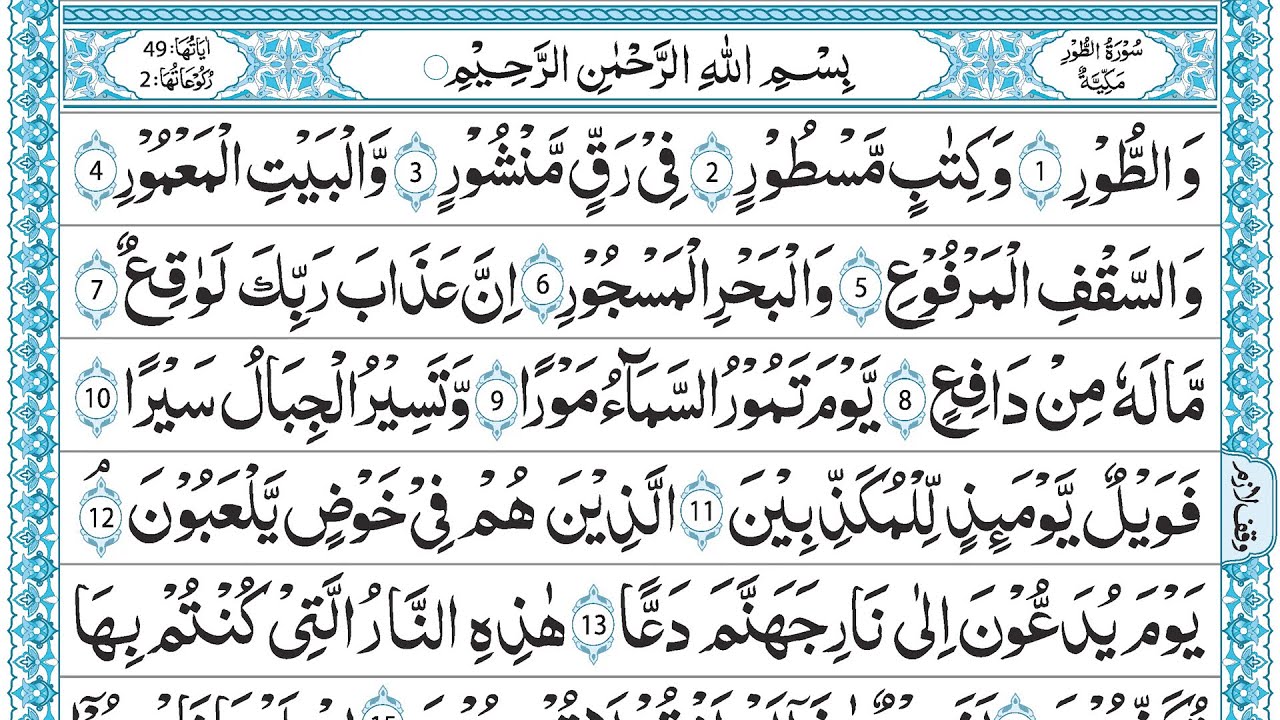 سُوْرَةُ الطُّوْرِ
مَكِّيَّةٌ
بِسْمِ اللّٰهِ الرَّحْمٰنِ الرَّحِيْمِ
اٰيَاتُهَا: 49
رُكُوْعَاتُهَا: 2
وَالطُّوْرِ 1 وَكِتٰبٍ مَّسْطُوْرٍ 2 فِىْ رَقٍّ مَّنْشُوْرٍ 3 وَّالْبَيْتِ الْمَعْمُوْرِ 4
وَالسَّقْفِ الْمَرْفُوْعِ 5 وَالْبَحْرِ الْمَسْجُوْرِ 6 اِنَّ عَذَابَ رَبِّكَ لَوَاقِعٌ 7
مَّا لَهٗ مِنْ دَافِعٍ 8 يَّوْمَ تَمُوْرُ السَّمَآءُ مَوْرًا 9 وَّتَسِيْرُ الْجِبَالُ سَيْرًا 10
فَوَيْلٌ يَّوْمَئِذٍ لِّلْمُكَذِّبِيْنَ 11 الَّذِيْنَ هُمْ فِىْ خَوْضٍ يَّلْعَبُوْنَ 12 ۘ
وقف لازم
يَوْمَ يُدَعُّوْنَ اِلٰى نَارِ جَهَنَّمَ دَعًّا 13 هٰذِهِ النَّارُ الَّتِىْ كُنْتُمْ بِهَا